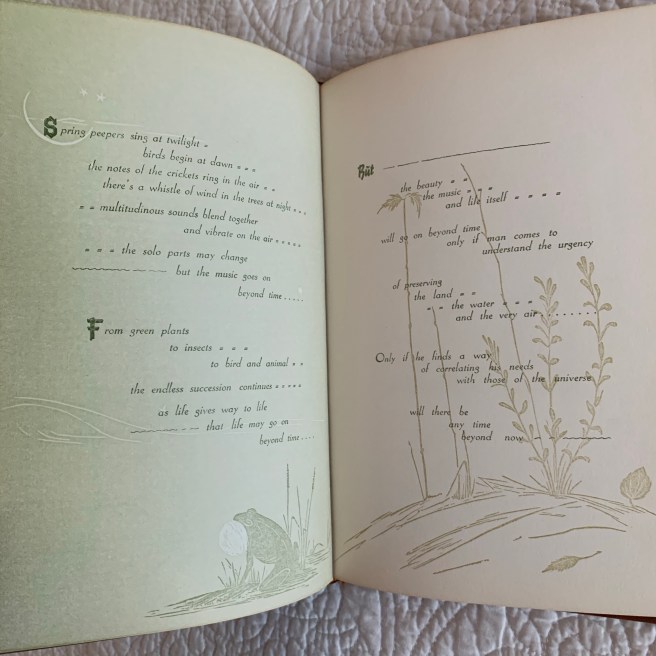 Spring peepers sing at twilight =
birds begin at dawn = = =
the notes of the crickets ring in the air = =
there's a whistle of wind in the trees at night = = =
= = multitudinous sounds blend together
and vibrate on the air = = = = =
= = = the solo parts may change
but the music goes on
beyond time . . . . .
From green plants
to insects = = =
to bird and animal = =
the endless succession continues = = = = =
as life gives way to life
that life may go on
beyond time . . . .
But
the beauty = =
the music = = =
and life itself = = = =
will go on beyond time
only if man comes to
understand the urgency
of preserving
the land = =
= = the water = = =
and the very air . . . . . . . .
Only if he finds a way
of correlating his needs
with those of the universe
will there be
any time
beyond now